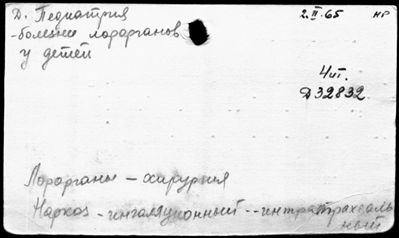 Д. Педиатрия
2.II.65
НР
-болезни лорорганов
у детей
4 иг.
Д32832
Лорорганы – хирургия
Наркоз – ингаляционный -- интратрахеаль
ный